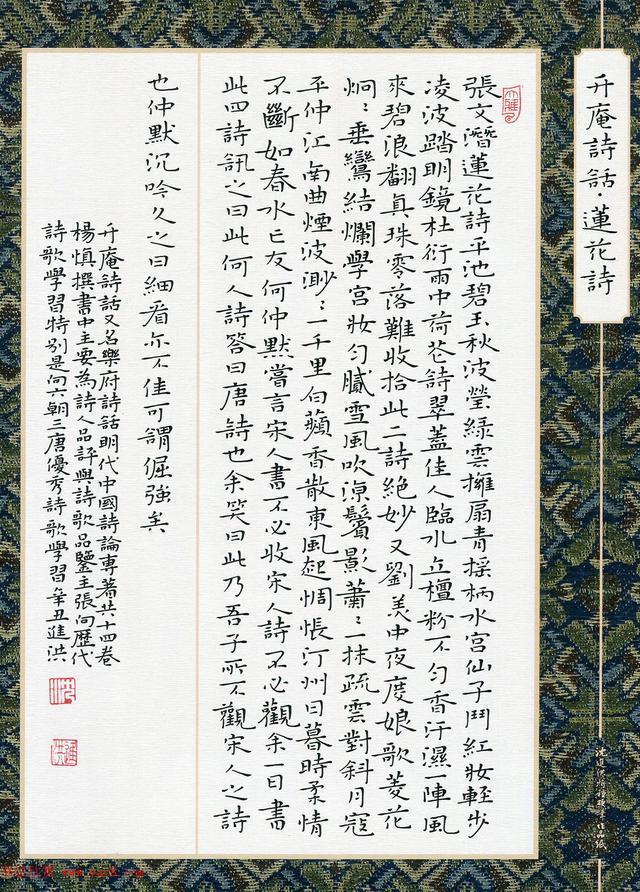 升庵詩話·蓮花詩
張文潛蓮花詩平池碧玉秋波瑩綠雲擁扇青搖柄水宮仙子鬥紅妝輕步
凌波踏明鏡杜衍雨中荷花詩翠蓋佳人臨水立檀粉不勻香汗濕一陣風
來碧浪翻真珠零落難收拾此二詩絕妙又劉美中夜度娘歌菱花
炯:垂鸞結爛學宮妝勻膩雪風吹涼鬢影蕭:一抹疏雲對斜月寇
平仲江南曲煙波渺:一千里白蘋香散東風起惆悵汀州日暮時柔情
不斷如春水亡友何仲默嘗言宋人書不必收宋人詩不必觀余一日書
此四詩訊之曰此何人詩答曰唐詩也余笑曰此乃吾子所不觀宋人之詩
也仲默沉吟久之曰細看亦不佳可謂倔強矣
升庵詩話又名樂府詩話明代中國詩論專著共十四卷
楊慎撰書中主要為詩人品評與詩歌品鑒主張向歷代
詩歌學習特別是向六朝三唐優秀詩歌學習辛丑進洪